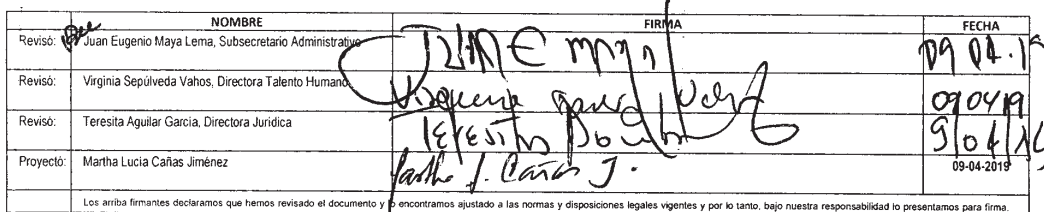 NOMBRE FIRMA FECHA
Revisó: Juan Eugenio Maya Lema, Subsecretario Administrativo 09 04.19
Revisó: Virginia Sepúlveda Vahos, Directora Talento Humano 090419
Revisó: Teresita Aguilar García, Directora Jurídica 9/04/19
Proyectó: Martha Lucia Cañas Jiménez Martha L. Cañas J. 09-04-2019
Los arriba firmantes declaramos que hemos revisado el documento y lo encontramos ajustado a las normas y disposiciones legales vigentes y por lo tanto, bajo nuestra responsabilidad lo presentamos para firma.